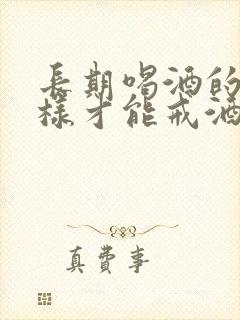 長期喝酒的
樣才能戒酒
真費事